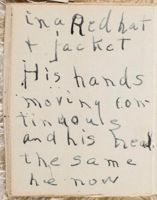 in a Red hat
+ jacket
His hands
moving con
tingouls
and his head
the same
he now